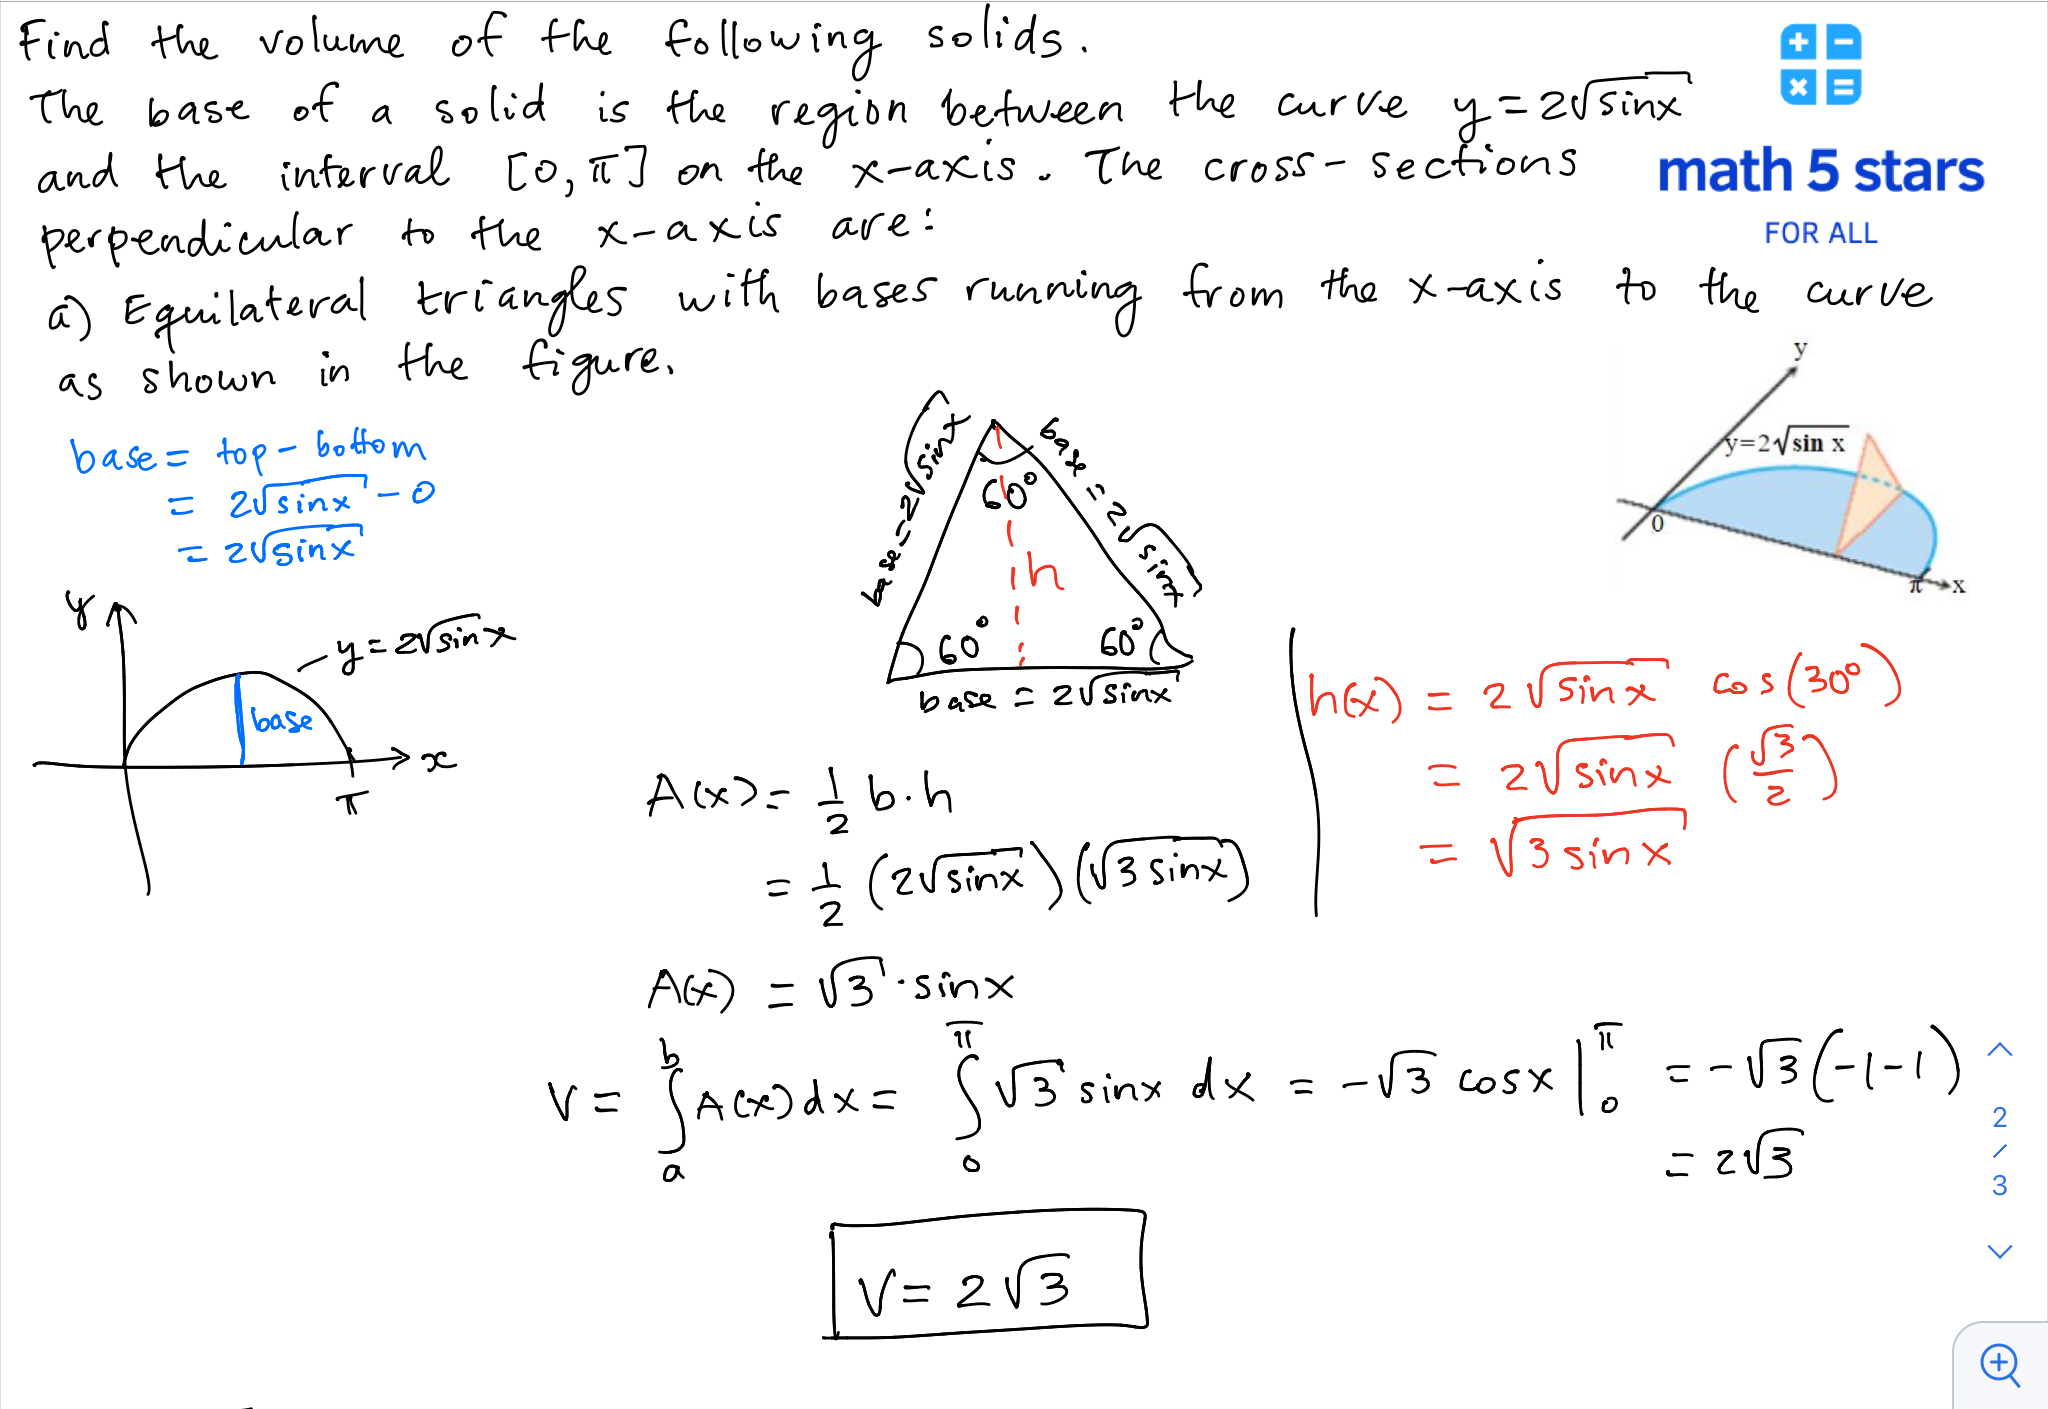 Find the volume of the following solids.
The base of a solid is the region between the curve y = 2√sinx
and the interval [0, π] on the x-axis. The cross-sections
perpendicular to the x-axis are:
a) Equilateral triangles with bases running from the x-axis to the curve
as shown in the figure.
math 5 stars
FOR ALL
base = top - bottom
= 2√sinx - 0
= 2√sinx
y
y = 2√sinx
base
x
π
base = 2√sinx
base = 2√sinx
60°
h
60°
60°
base = 2√sinx
y
y=2√sin x
0
π
x
h(x) = 2√sinx cos(30°)
= 2√sinx (√3/2)
= √3 sinx
A(x) = 1/2 b·h
= 1/2 (2√sinx)(√3 sinx)
A(x) = √3 · sinx
V = ∫_a^b A(x)dx = ∫_0^π √3 sinx dx = -√3 cosx |_0^π = -√3(-1-1)
= 2√3
V = 2√3
2
/
3